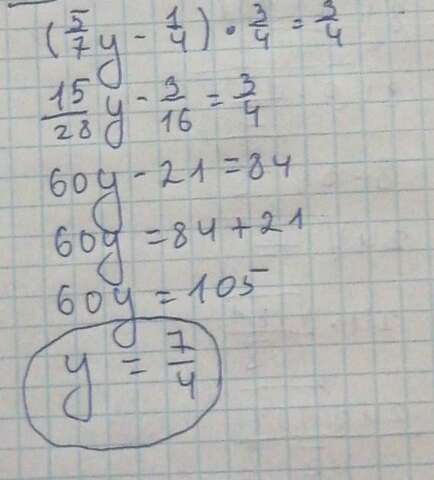 (5/7 y - 1/4) · 3/4 = 3/4
15/28 y - 3/16 = 3/4
60y - 21 = 84
60y = 84 + 21
60y = 105
y = 7/4